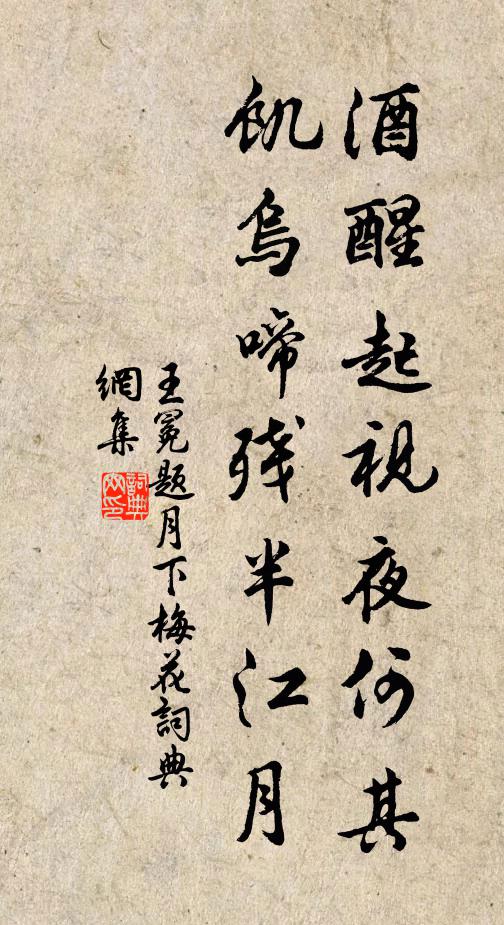 酒醒起視夜何其
飢烏啼殘半江月
王冕題月下梅花詞典
網集
詞典
網印